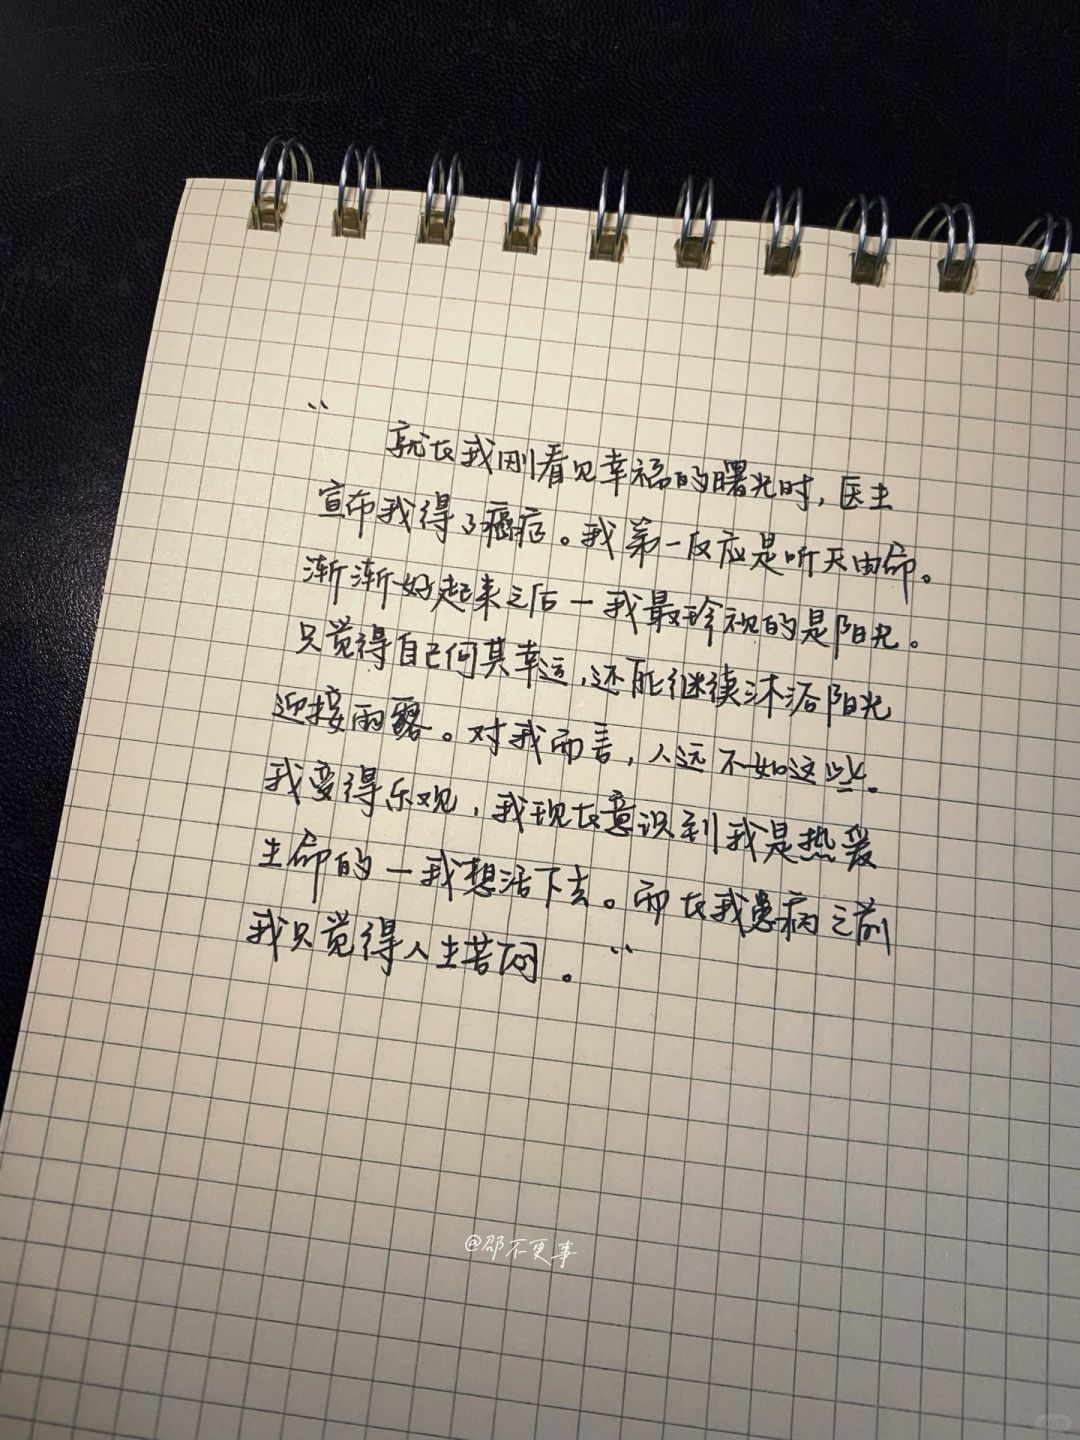 “
就在我刚看见幸福的曙光时，医生
宣布我得了癌症。我第一反应是听天由命。
渐渐好起来之后一我最珍视的是阳光。
只觉得自己何其幸运，还能继续沐浴阳光
迎接雨露。对我而言，人远不如这些。
我变得乐观，我现在意识到我是热爱
生命的一我想活下去。而在我患病之前
我只觉得人生苦闷。”
@邵不更事